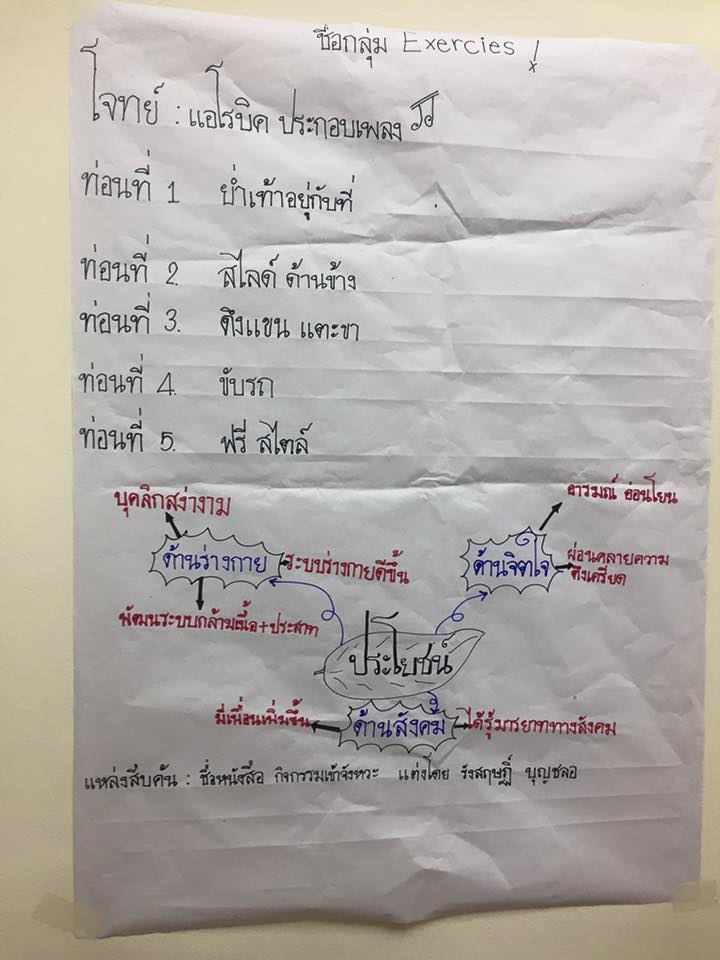 ชื่อกลุ่ม Exercies !
โจทย์ : แอโรบิค ประกอบเพลง
ท่อนที่ 1 ย่ำเท้าอยู่กับที่
ท่อนที่ 2. สไลด์ ด้านข้าง
ท่อนที่ 3. ดึงแขน แตะขา
ท่อนที่ 4. ขับรถ
ท่อนที่ 5. ฟรี สไตล์
บุคลิกสง่างาม
ด้านร่างกาย
ระบบร่างกายดีขึ้น
พัฒนระบบกล้ามเนื้อ+ประสาท
อารมณ์ อ่อนโยน
ด้านจิตใจ
ผ่อนคลายความ
ตึงเครียด
ประโยชน์
มีเพื่อนเพิ่มขึ้น
ด้านสังคม
ได้รู้มารยาททางสังคม
แหล่งสืบค้น : ชื่อหนังสือ กิจกรรมเข้าจังหวะ แต่งโดย รังสฤษฏิ์ บุญชลอ